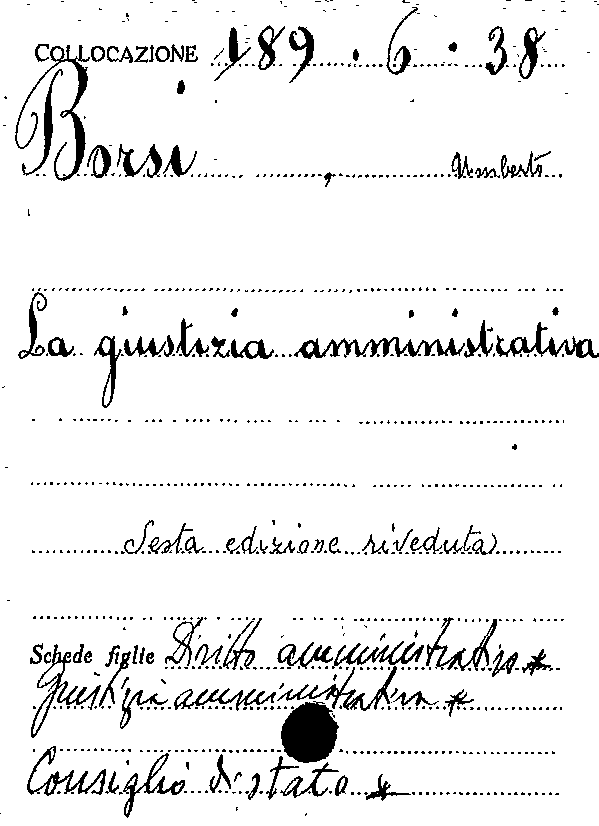 COLLOCAZIONE 189 . 6 . 38
Borsi , Umberto
La giustizia amministrativa
Sesta edizione riveduta
Schede figlie Diritto amministrativo *
Giustizia amministrativa *
Consiglio di stato *